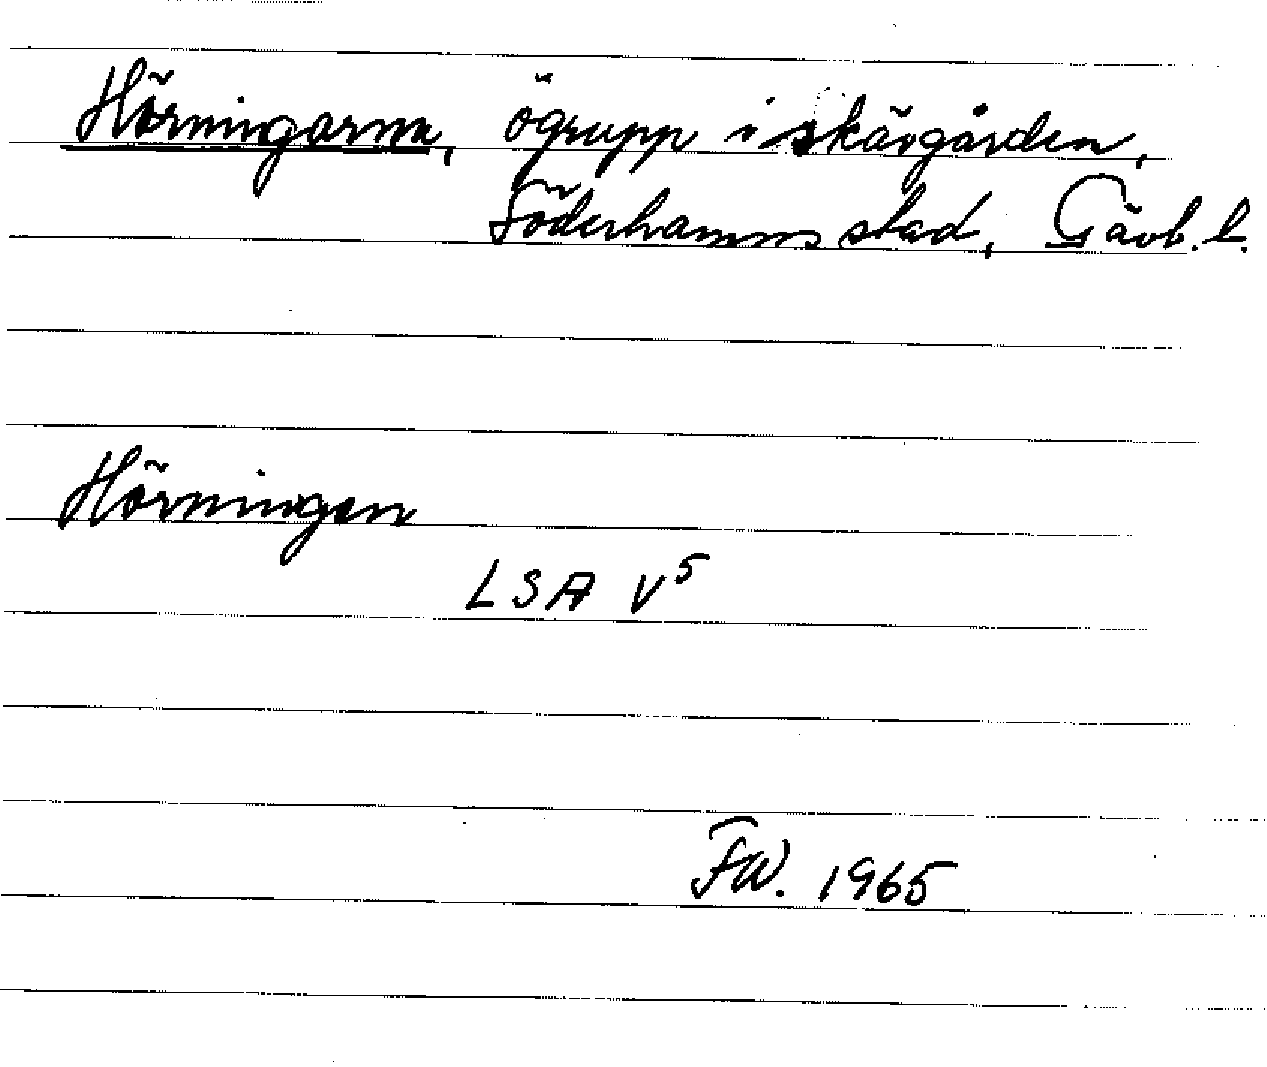 Hörningarna, ögrupp i skärgården,
Söderhamns stad, Gävb. l.
Hörningen
LSA V⁵
FW. 1965